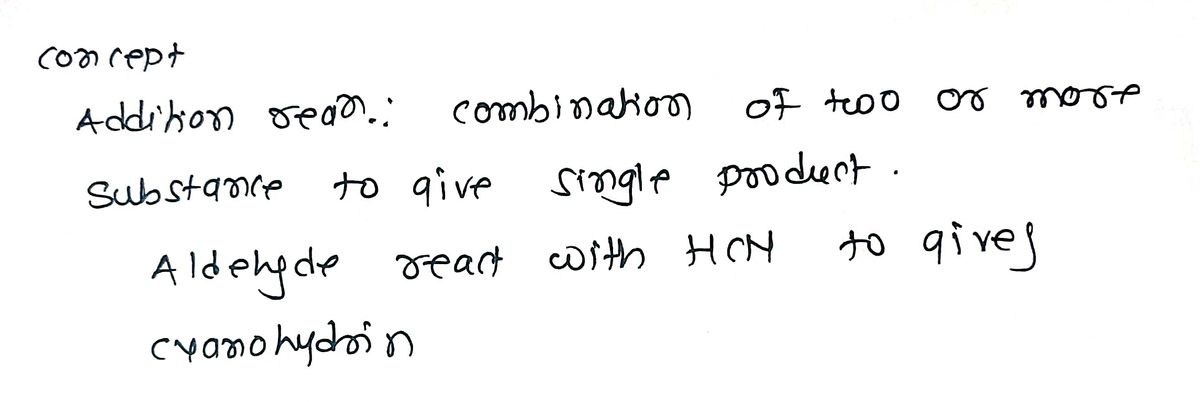 concept
Addition rean.: combination of two or more
Substance to give single product.
Aldehyde react with HCN to gives
cyanohydrin